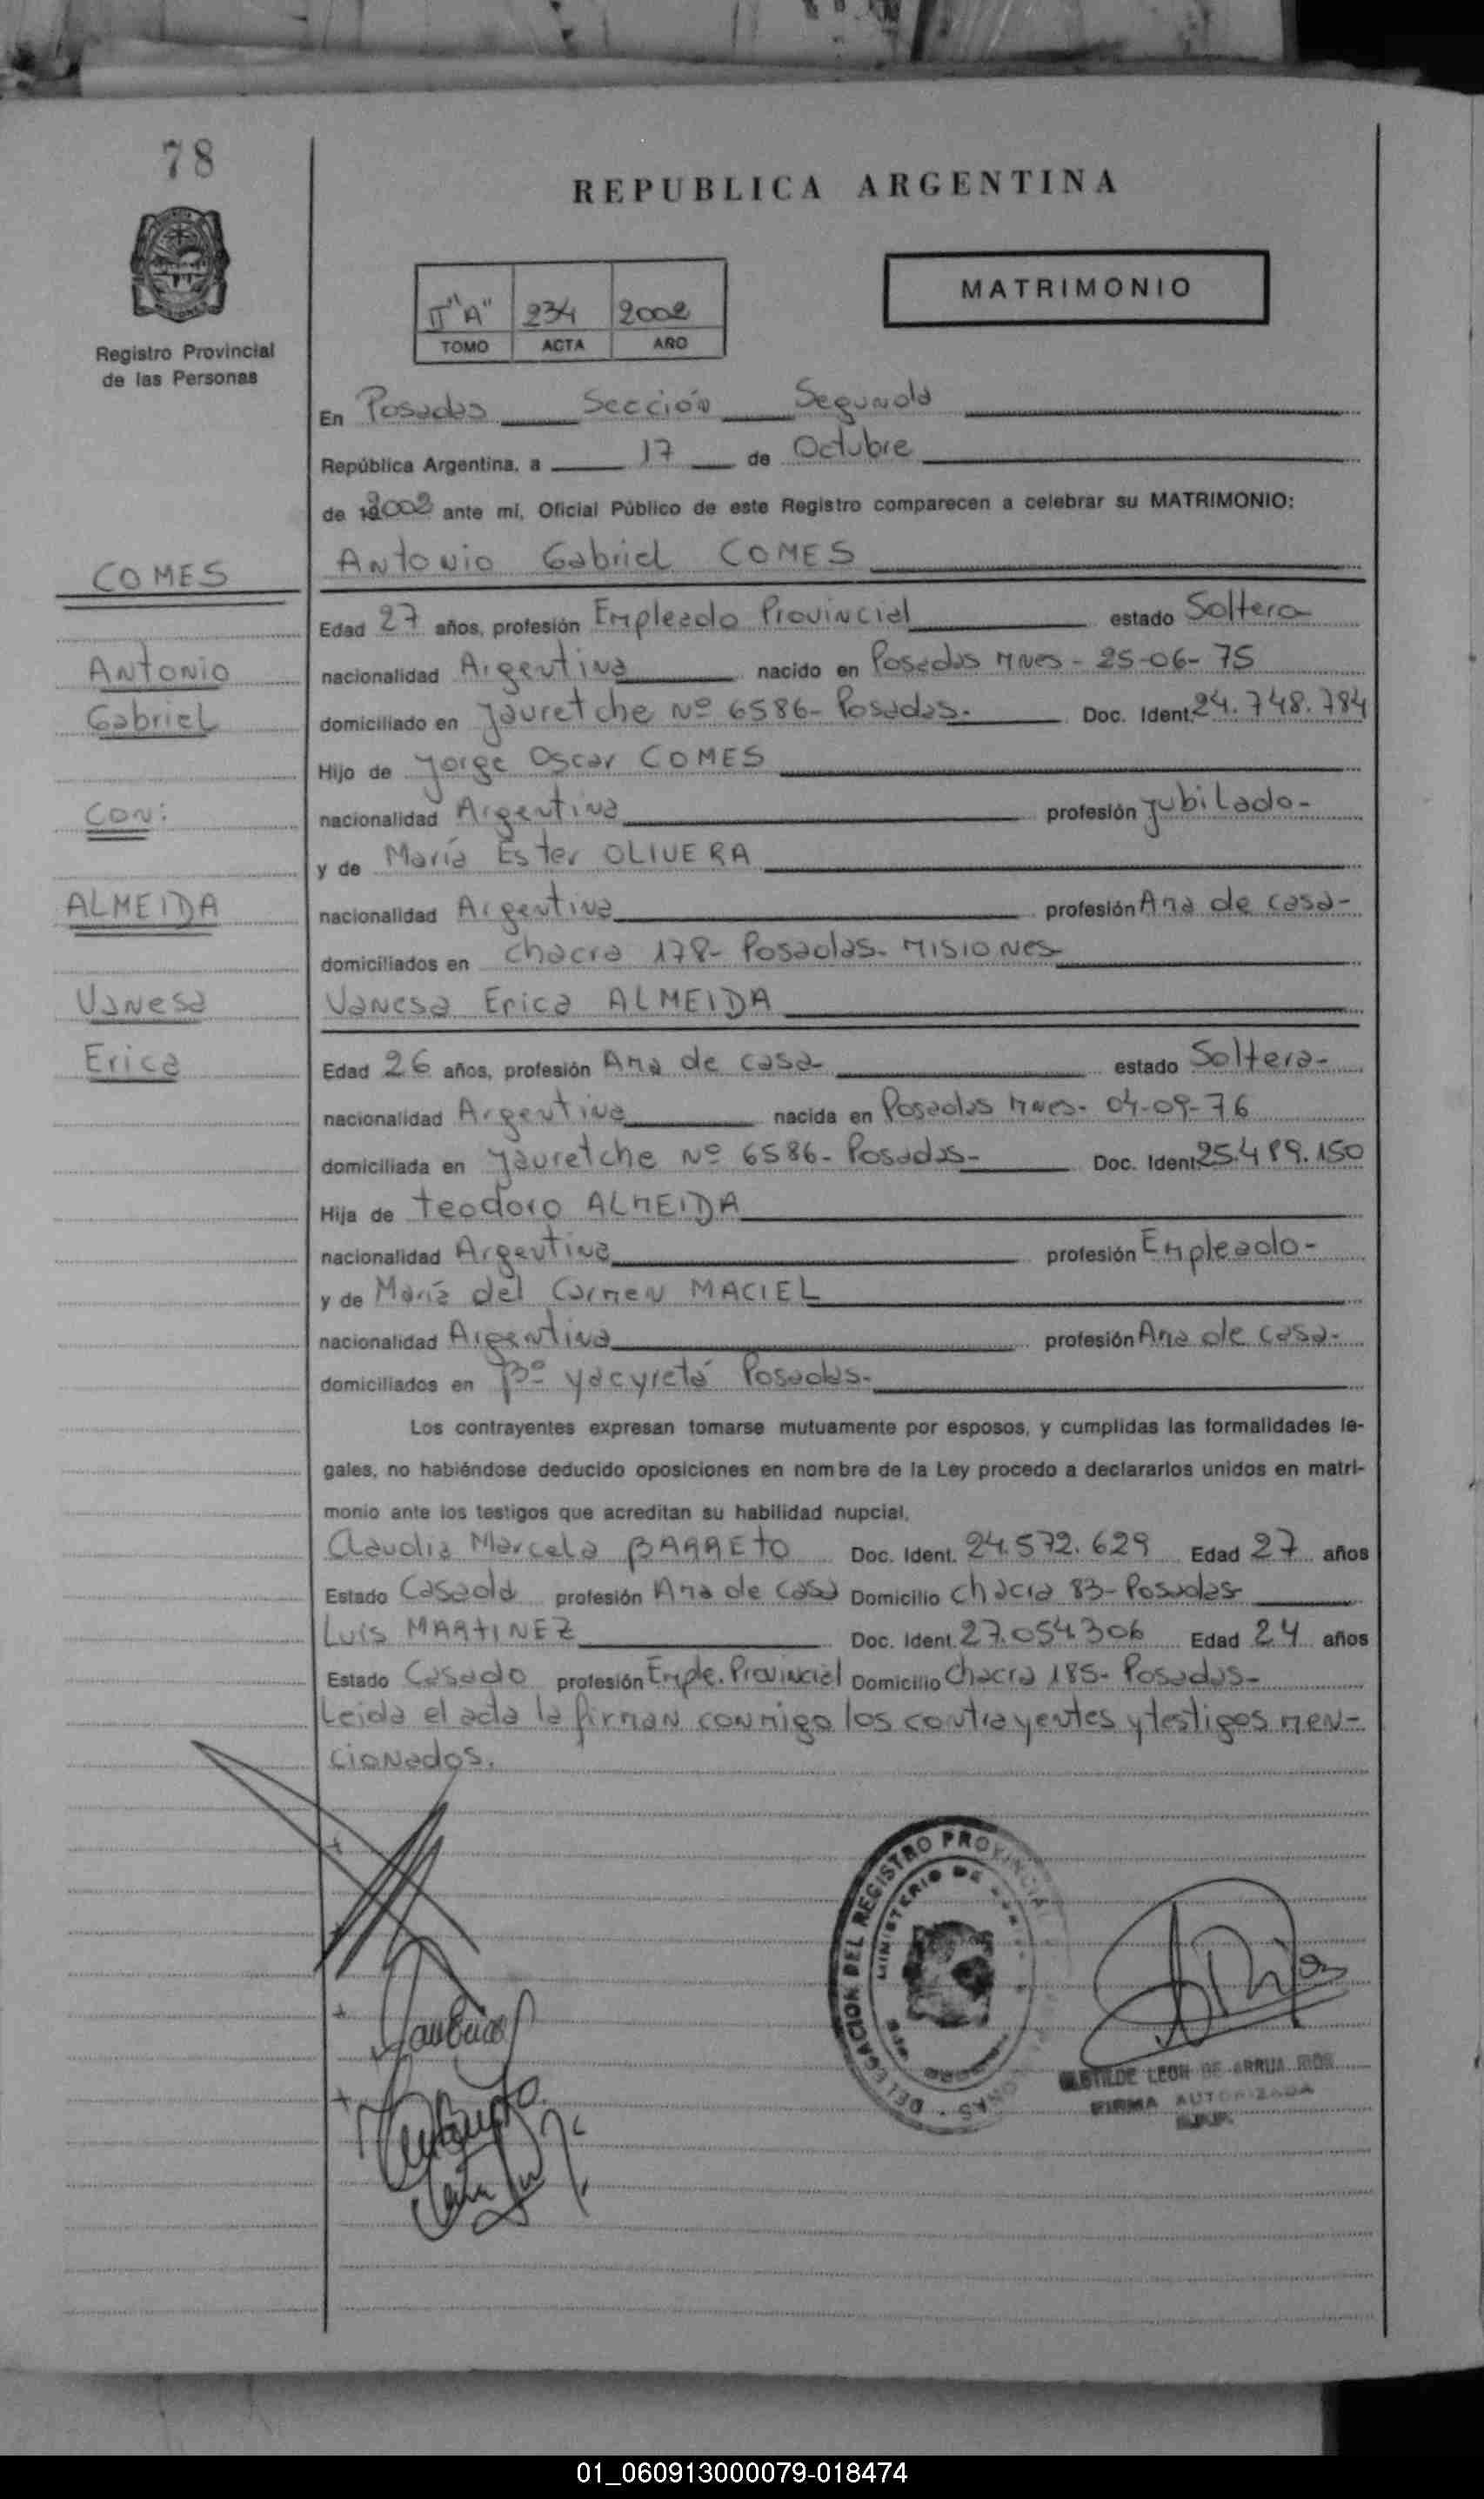 78
REPUBLICA ARGENTINA
MATRIMONIO
II "A" 234 2002
TOMO ACTA AÑO
Registro Provincial
de las Personas
En Posadas Sección Segunda
República Argentina, a 17 de Octubre
de 2002 ante mí, Oficial Público de este Registro comparecen a celebrar su MATRIMONIO:
COMES
Antonio Gabriel COMES
Edad 27 años, profesión Empleado Provincial estado Soltero
Antonio
nacionalidad Argentina nacido en Posadas Mnes - 25-06-75
Gabriel
domiciliado en Jauretche Nº 6586- Posadas- Doc. Ident. 24.748.784
Hijo de Jorge Oscar COMES
CON:
nacionalidad Argentina profesión Jubilado-
y de María Ester OLIVERA
ALMEIDA
nacionalidad Argentina profesión Ama de casa-
domiciliados en Chacra 178- Posadas- MISIONES
Vanesa
Vanesa Erica ALMEIDA
Erica
Edad 26 años, profesión Ama de casa estado Soltera-
nacionalidad Argentina nacida en Posadas Mnes- 04-09-76
domiciliada en Jauretche Nº 6586- Posadas- Doc. Ident. 25.489.150
Hija de Teodoro ALMEIDA
nacionalidad Argentina profesión Empleado-
y de María del Carmen MACIEL
nacionalidad Argentina profesión Ama de casa-
domiciliados en Bº Yacyretá Posadas-
Los contrayentes expresan tomarse mutuamente por esposos, y cumplidas las formalidades le-
gales, no habiéndose deducido oposiciones en nombre de la Ley procedo a declararlos unidos en matri-
monio ante los testigos que acreditan su habilidad nupcial,
Claudia Marcela BARRETO Doc. Ident. 24.572.629 Edad 27 años
Estado Casada profesión Ama de casa Domicilio Chacra 83- Posadas-
Luis MARTINEZ Doc. Ident. 27.054.306 Edad 24 años
Estado Casado profesión Emple. Provincial Domicilio Chacra 185- Posadas-
Leida el acta la firman conmigo los contrayentes y testigos men-
cionados.
DELEGACION DEL REGISTRO PROVINCIAL
MINISTERIO DE
LEON DE ARRUA
FIRMA AUTORIZADA
01_060913000079-018474